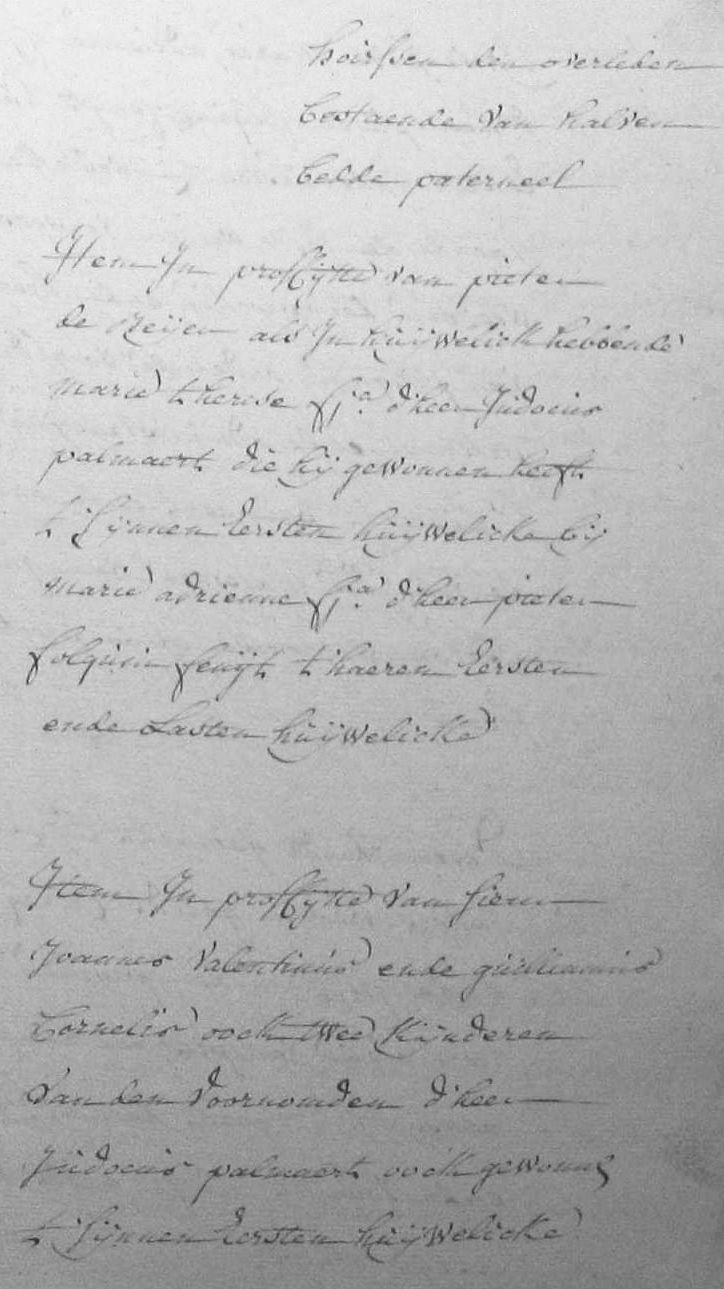 hoirssen den overleden
bestaende van halven
bedde paterneel
Item In proffijtte van pieter
de Reijen als In huijwelick hebbende
marie therese f.a d'heer Judocus
palmaert die hij gewonnen heeft
t'sijnnen Eersten huijwelicke bij
marie adrienne f.a d'heer pieter
folquin feuijt t'haeren Eersten
ende Lasten huijwelicke
Item In proffijtte van sieur
Joannes Valentinus ende guilliamus
Cornelis oock twee Kijnderen
Van den Voornomden d'heer
Judocus palmaert oock gewonn
t'sijnnen Eersten huijwelicke